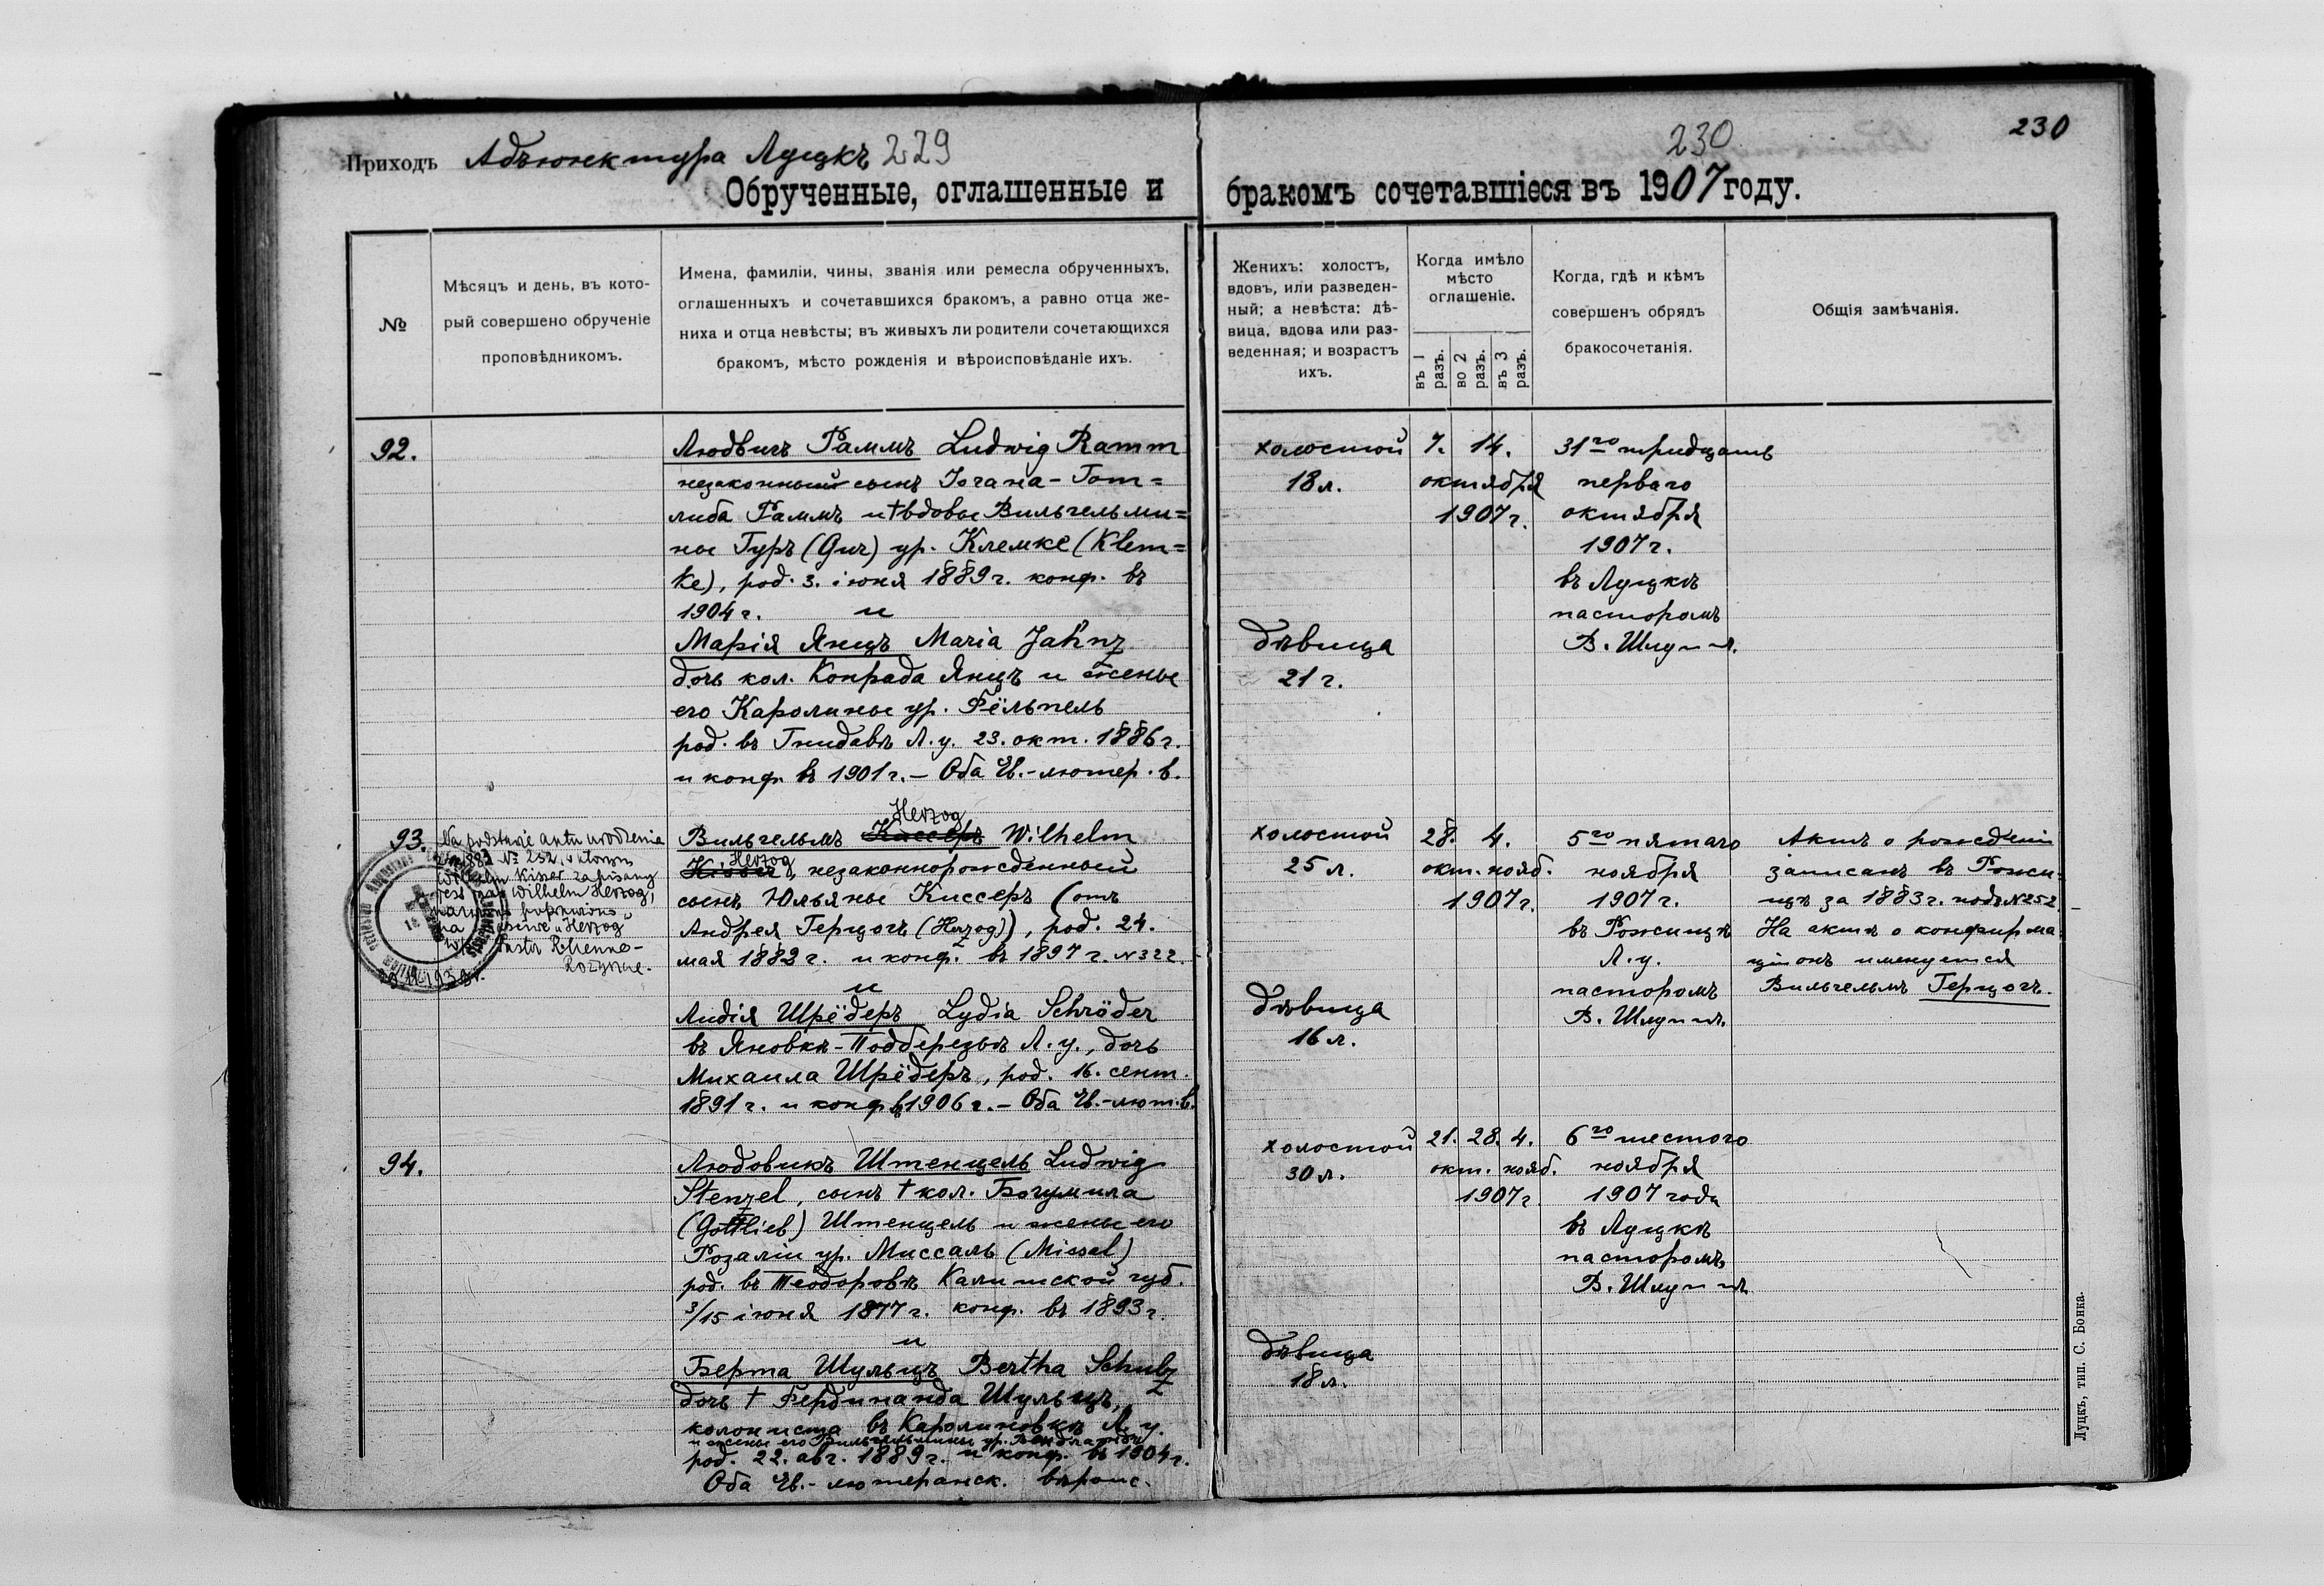 Приходъ Адъюнктура Луцкъ 229
Обрученные, оглашенные и
№
Мѣсяцъ и день, въ кото-
рый совершено обрученіе
проповѣдникомъ.
Имена, фамиліи, чины, званія или ремесла обрученныхъ,
оглашенныхъ и сочетавшихся бракомъ, а равно отца же-
ниха и отца невѣсты; въ живыхъ ли родители сочетающихся
бракомъ, мѣсто рожденія и вѣроисповѣданіе ихъ.
92.
Людвигъ Раммъ Ludwig Ramm
незаконный сынъ Іогана-Гот=
либа Раммъ и † вдовы Вильгельми=
ны Гуръ (Gur) ур. Клемке (Klem=
ke), род. 3. іюня 1889 г. конф. въ
1904 г. и
Марія Янцъ Maria Jahnz
дочь кол. Конрада Янцъ и жены
его Каролины ур. Фёльпель
род. въ Гнидавѣ Л. у. 23. окт. 1886 г.
и конф. въ 1901 г. – Оба Ев.-лютер. в.
93.
Na podstawie aktu urodzenia
z r. 1883 № 252, w którym
Wilhelm Kisser zapisany
jest jako Wilhelm Herzog,
na „Herzog
Pastor
Rożyszcze.
Herzog
Вильгельмъ Киссеръ Wilhelm
Herzog
Kisser, незаконнорожденный
сынъ Юльяны Киссеръ (отъ
Андрея Герцогъ (Herzog)), род. 24.
мая 1882 г. и конф. въ 1897 г. № 322.
и
Лидія Шрёдеръ Lydia Schröder
въ Яновкѣ-Поддерецьѣ Л. у., дочь
Михаила Шрёдеръ, род. 16. сент.
1891 г. и конф въ 1906 г. – Оба Ев.-лют. в.
94.
Людовикъ Штенцель Ludwig
Stenzel, сынъ † кол. Богумила
(Gottlieb) Штенцель и жены его
Розаліи ур. Миссаль (Missal)
род. въ Теодоровѣ Калишской губ.
3/15 іюня 1877 г. конф. въ 1893 г.
и
Берта Шульцъ Bertha Schulz
дочь † Фердинанда Шульцъ,
колониста въ Каролиновкѣ Л. у.
и жены его Вильгельмины ур.
род. 22. авг. 1889 г. и конф. въ 1904 г.
Оба Ев.-лютеранск. вѣроис.
230
230
бракомъ сочетавшіеся въ 1907 году.
Женихъ: холостъ,
вдовъ, или разведен-
ный; а невѣста: дѣ-
вица, вдова или раз-
веденная; и возрастъ
ихъ.
Когда имѣло
мѣсто
оглашеніе.
въ 1
разъ.
во 2
разъ.
въ 3
разъ.
Когда, гдѣ и кѣмъ
совершенъ обрядъ
бракосочетанія.
Общія замѣчанія.
холостой
18 л.
дѣвица
21 г.
7. 14.
октября
1907 г.
31го тридцать
перваго
октября
1907 г.
въ Луцкѣ
пасторомъ
В. Шлуппъ.
холостой
25 л.
дѣвица
16 л.
28. 4.
окт. нояб.
1907 г.
5го пятаго
ноября
1907 г.
въ Рожищѣ
Л. у.
пасторомъ
В. Шлуппъ.
Актъ о рожденіи
записанъ въ Рожи-
щѣ за 1883 г. подъ № 252
На актѣ о конфирма-
ціи онъ именуется
Вильгельмъ Герцогъ.
холостой
30 л.
дѣвица
18 л.
21. 28. 4.
окт. нояб.
1907 г.
6го шестого
ноября
1907 года
въ Луцкѣ
пасторомъ
В. Шлуппъ
Луцкъ, тип. С. Бонка.